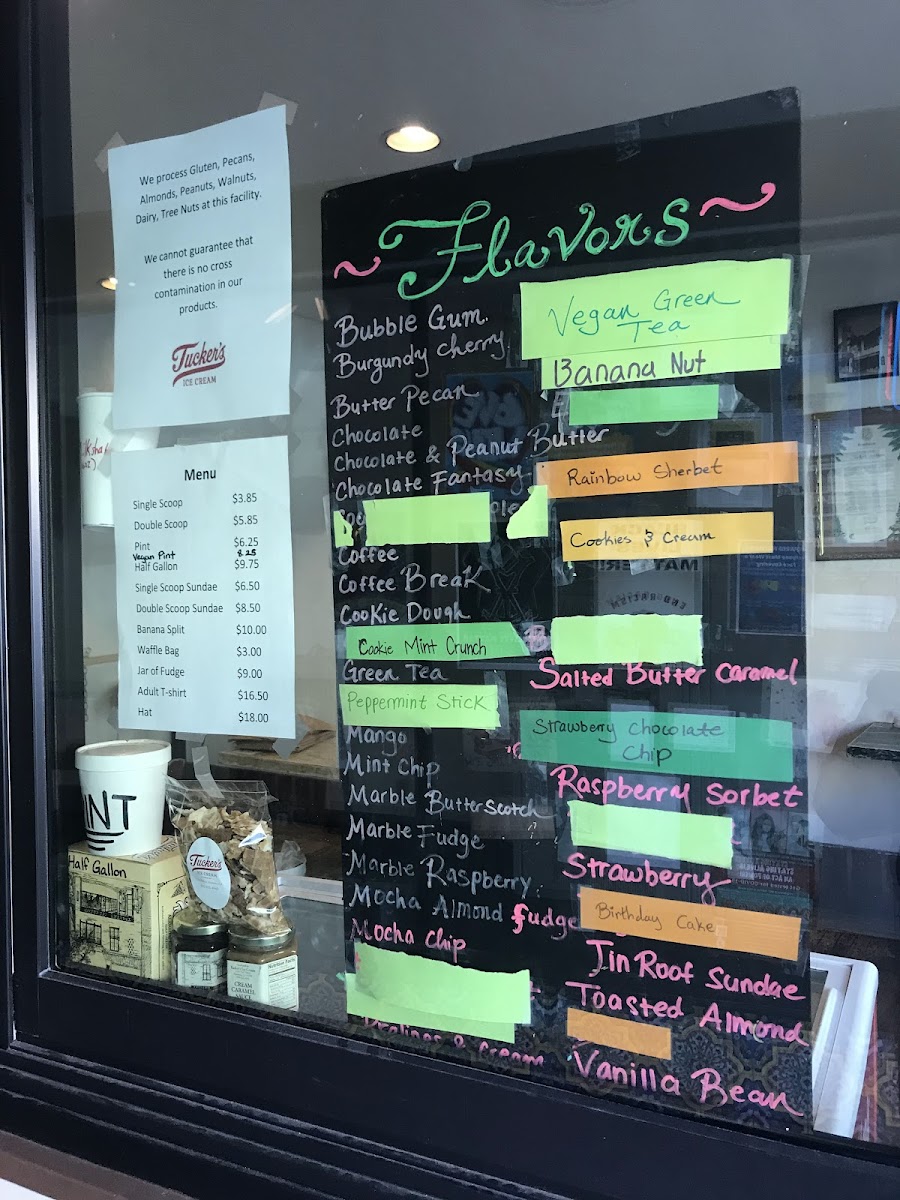 We process Gluten, Pecans,
Almonds, Peanuts, Walnuts,
Dairy, Tree Nuts at this facility.
We cannot guarantee that
there is no cross
contamination in our
products.
Tucker's
ICE CREAM
Menu
Single Scoop $3.85
Double Scoop $5.85
Pint $6.25
Vegan Pint 8.25
Half Gallon $9.75
Single Scoop Sundae $6.50
Double Scoop Sundae $8.50
Banana Split $10.00
Waffle Bag $3.00
Jar of Fudge $9.00
Adult T-shirt $16.50
Hat $18.00
Half Gallon
Tucker's
CREAM
CARAMEL
~Flavors~
Bubble Gum.
Burgundy Cherry
Butter Pecan
Chocolate
Chocolate & Peanut Butter
Chocolate Fantasy
Coffee
Coffee Break
Cookie Dough
Cookie Mint Crunch
Green Tea
Peppermint Stick
Mango
Mint Chip
Marble Butterscotch
Marble Fudge
Marble Raspberry
Mocha Almond fudge
Mocha Chip
Pralines & Cream
Vegan Green
Tea
Banana Nut
Rainbow Sherbet
Cookies & Cream
Salted Butter Caramel
Strawberry Chocolate
Chip
Raspberry Sorbet
Strawberry
Birthday Cake
Tin Roof Sundae
Toasted Almond
Vanilla Bean